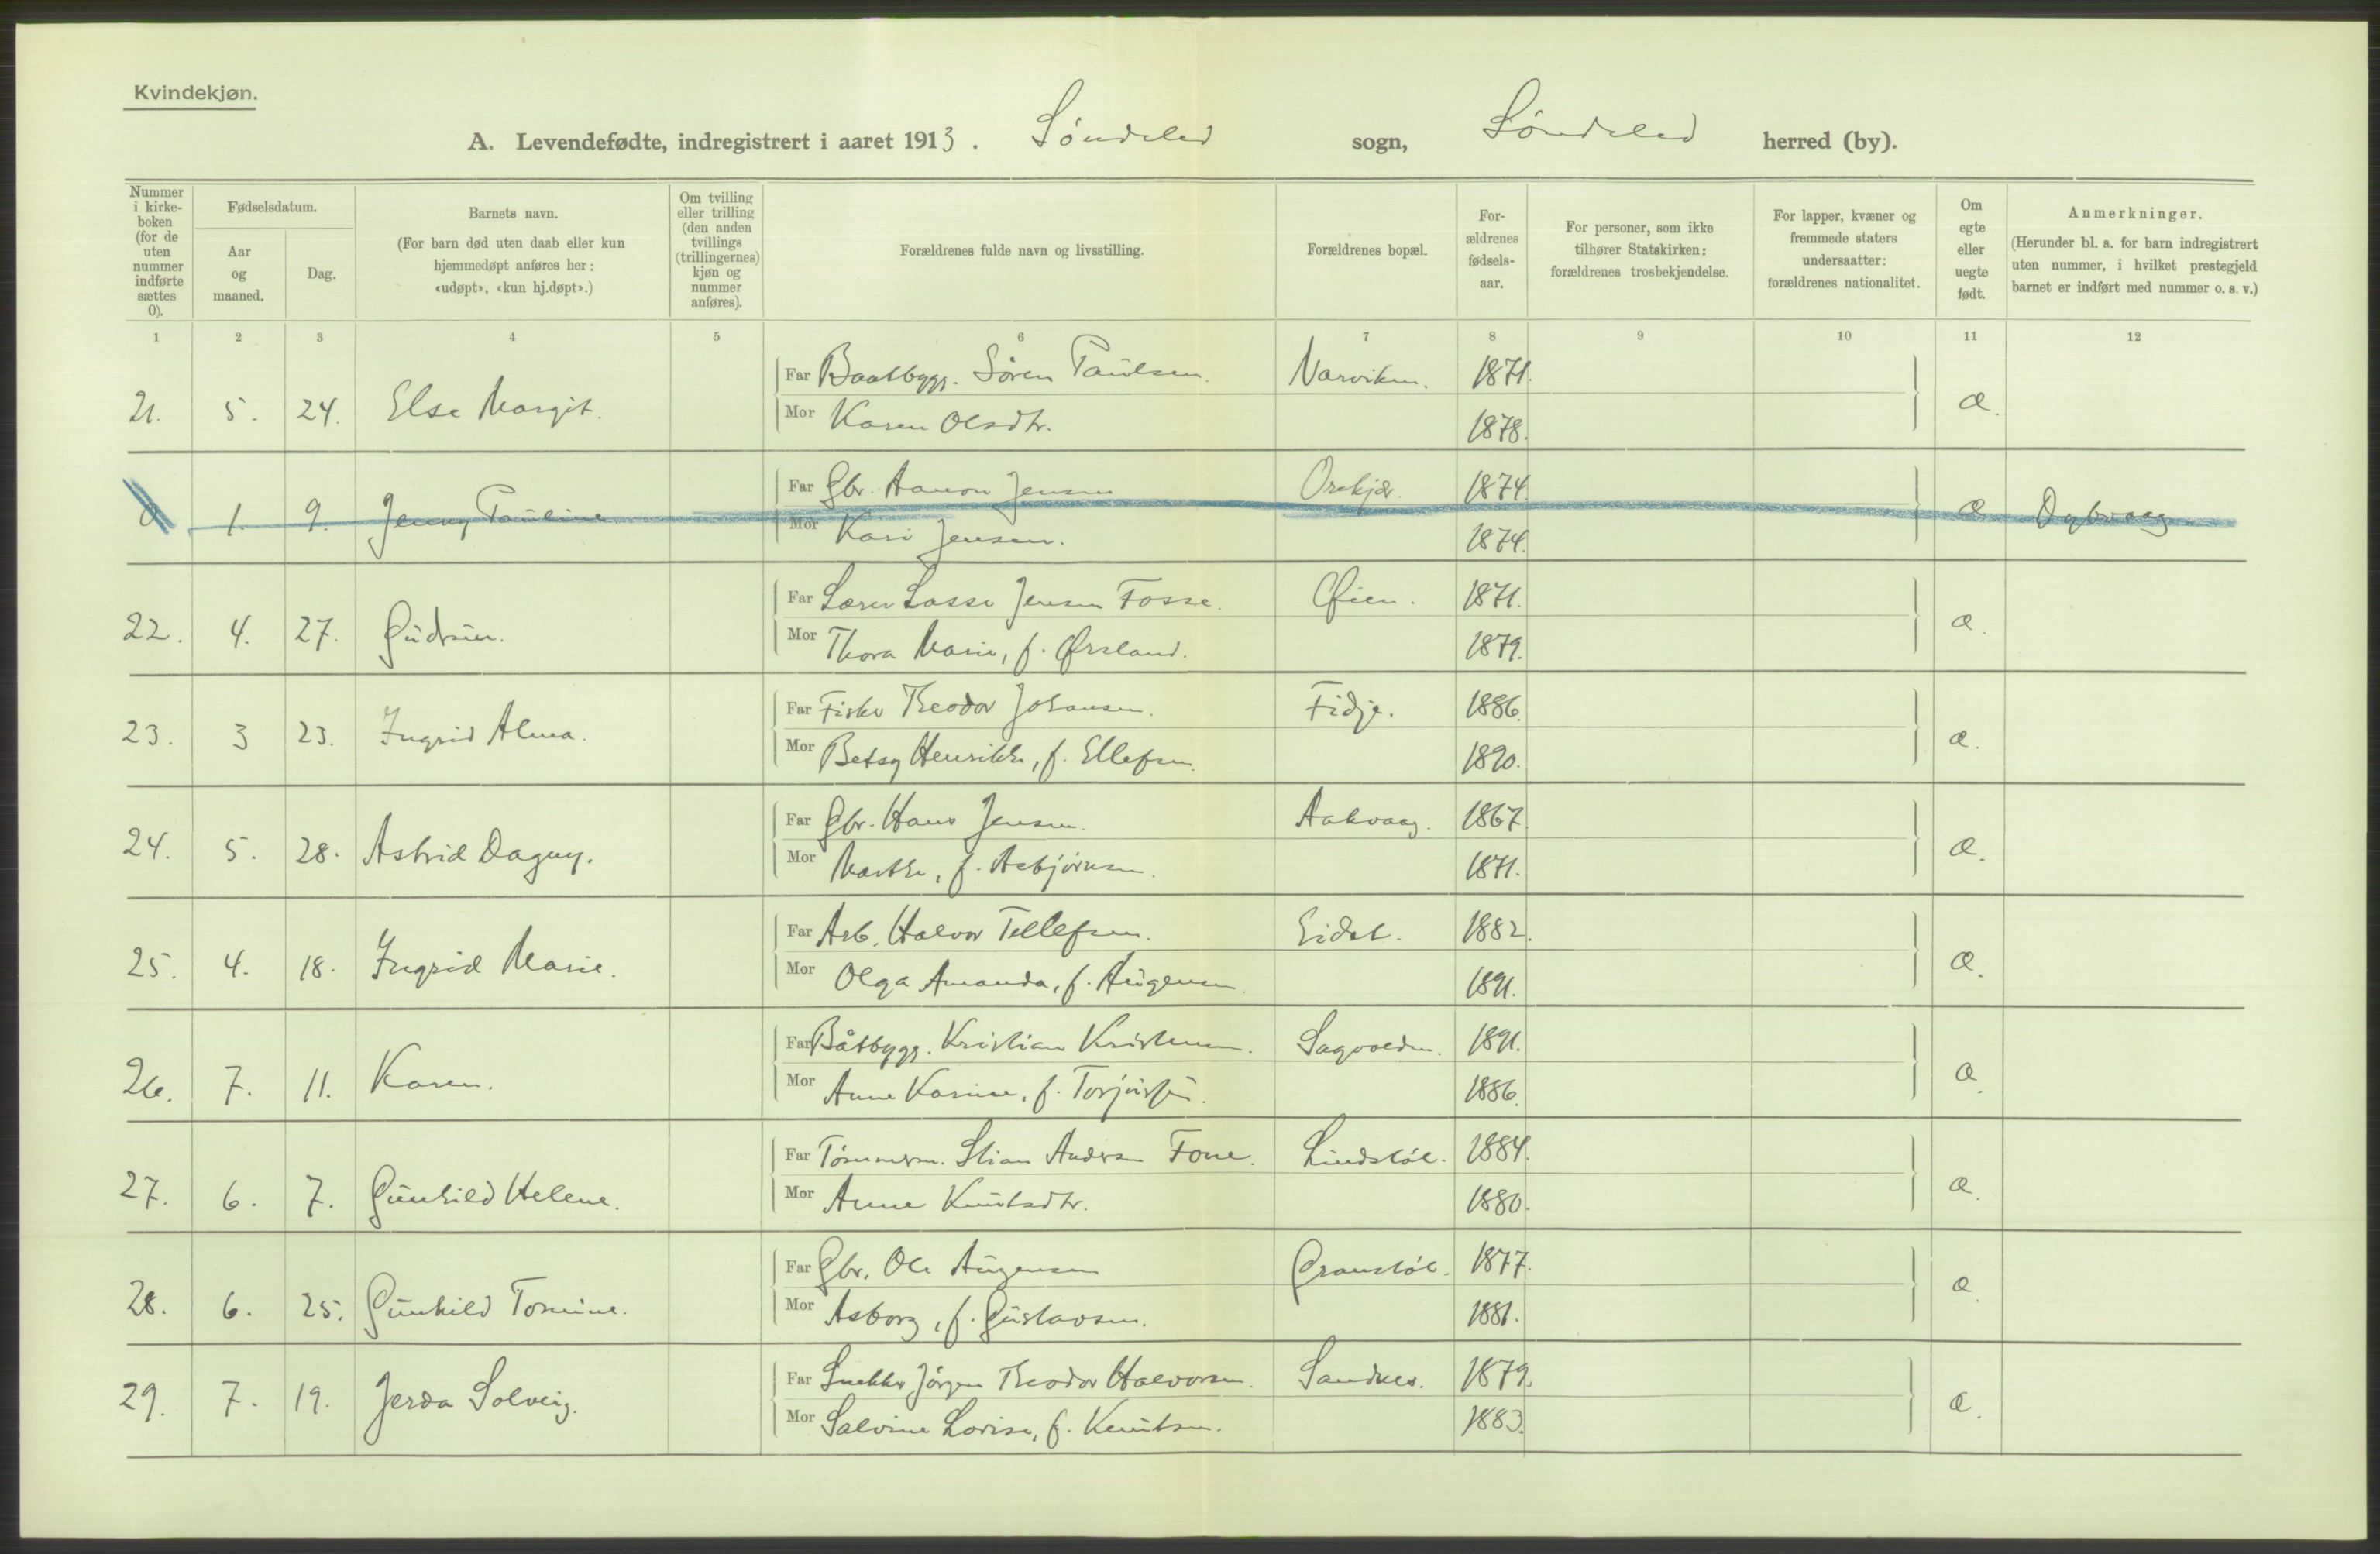 Kvindekjøn.
A. Levendefødte, indregistrert i aaret 1913. Søndeled sogn, Søndeled herred (by).
Nummer i kirkeboken (for de uten nummer indførte sættes 0).
Fødselsdatum.
Aar og maaned.
Dag.
Barnets navn.
(For barn død uten daab eller kun hjemmedøpt anføres her: «udøpt», «kun hj.døpt».)
Om tvilling eller trilling (den anden tvillings (trillingernes) kjøn og nummer anføres).
Forældrenes fulde navn og livsstilling.
Forældrenes bopæl.
For-ældrenes fødsels-aar.
For personer, som ikke tilhører Statskirken: forældrenes trosbekjendelse.
For lapper, kvæner og fremmede staters undersaatter: forældrenes nationalitet.
Om egte eller uegte født.
Anmerkninger.
(Herunder bl. a. for barn indregistrert uten nummer, i hvilket prestegjeld barnet er indført med nummer o. s. v.)
1 2 3 4 5 6 7 8 9 10 11 12
Far Baatbygg. Søren Paulsen. Narviken. 1871.
21. 5. 24. Else Margit. æ.
Mor Karen Olsdtr. 1878.
Far Gbr. Aanon Jensen Orekjær. 1874.
0 1. 9. Jenny Pauline æ Dybvaag
Mor Kari Jensen. 1874.
Far Lærer Lasse Jensen Fosse. Øien. 1871.
22. 4. 27. Gudrun. æ.
Mor Thora Marie, f. Ørsland. 1879.
Far Fisker Theodor Johansen. Fidje. 1886.
23. 3 23. Ingrid Alma. æ.
Mor Betsy Henrikke, f. Ellefsen. 1890.
Far Gbr. Hans Jensen. Aakvaag. 1867.
24. 5. 28. Astrid Dagny. æ.
Mor Marthe, f. Asbjørnsen. 1871.
Far Arb. Halvor Tellefsen. Eidet. 1882.
25. 4. 18. Ingrid Marie. æ.
Mor Olga Amanda, f. Augensen. 1891.
Far Båtbygg. Kristian Kristensen. Sagvolden. 1891.
26. 7. 11. Karen. æ.
Mor Anne Karine, f. Torjusen. 1886.
Far Tømmerm. Stian Andersen Fone. Lindstøl. 1884.
27. 6. 7. Gunhild Helene. æ.
Mor Anne Knutsdtr. 1880.
Far Gbr. Ole Augensen Granstøl. 1877.
28. 6. 25. Gunhild Tomine. æ.
Mor Asborg, f. Gustavsen. 1881.
Far Snekker Jörgen Theodor Halvorsen. Sandnes. 1879.
29. 7. 19. Jerda Solveig. æ.
Mor Salvine Lovise, f. Knutsen. 1883.